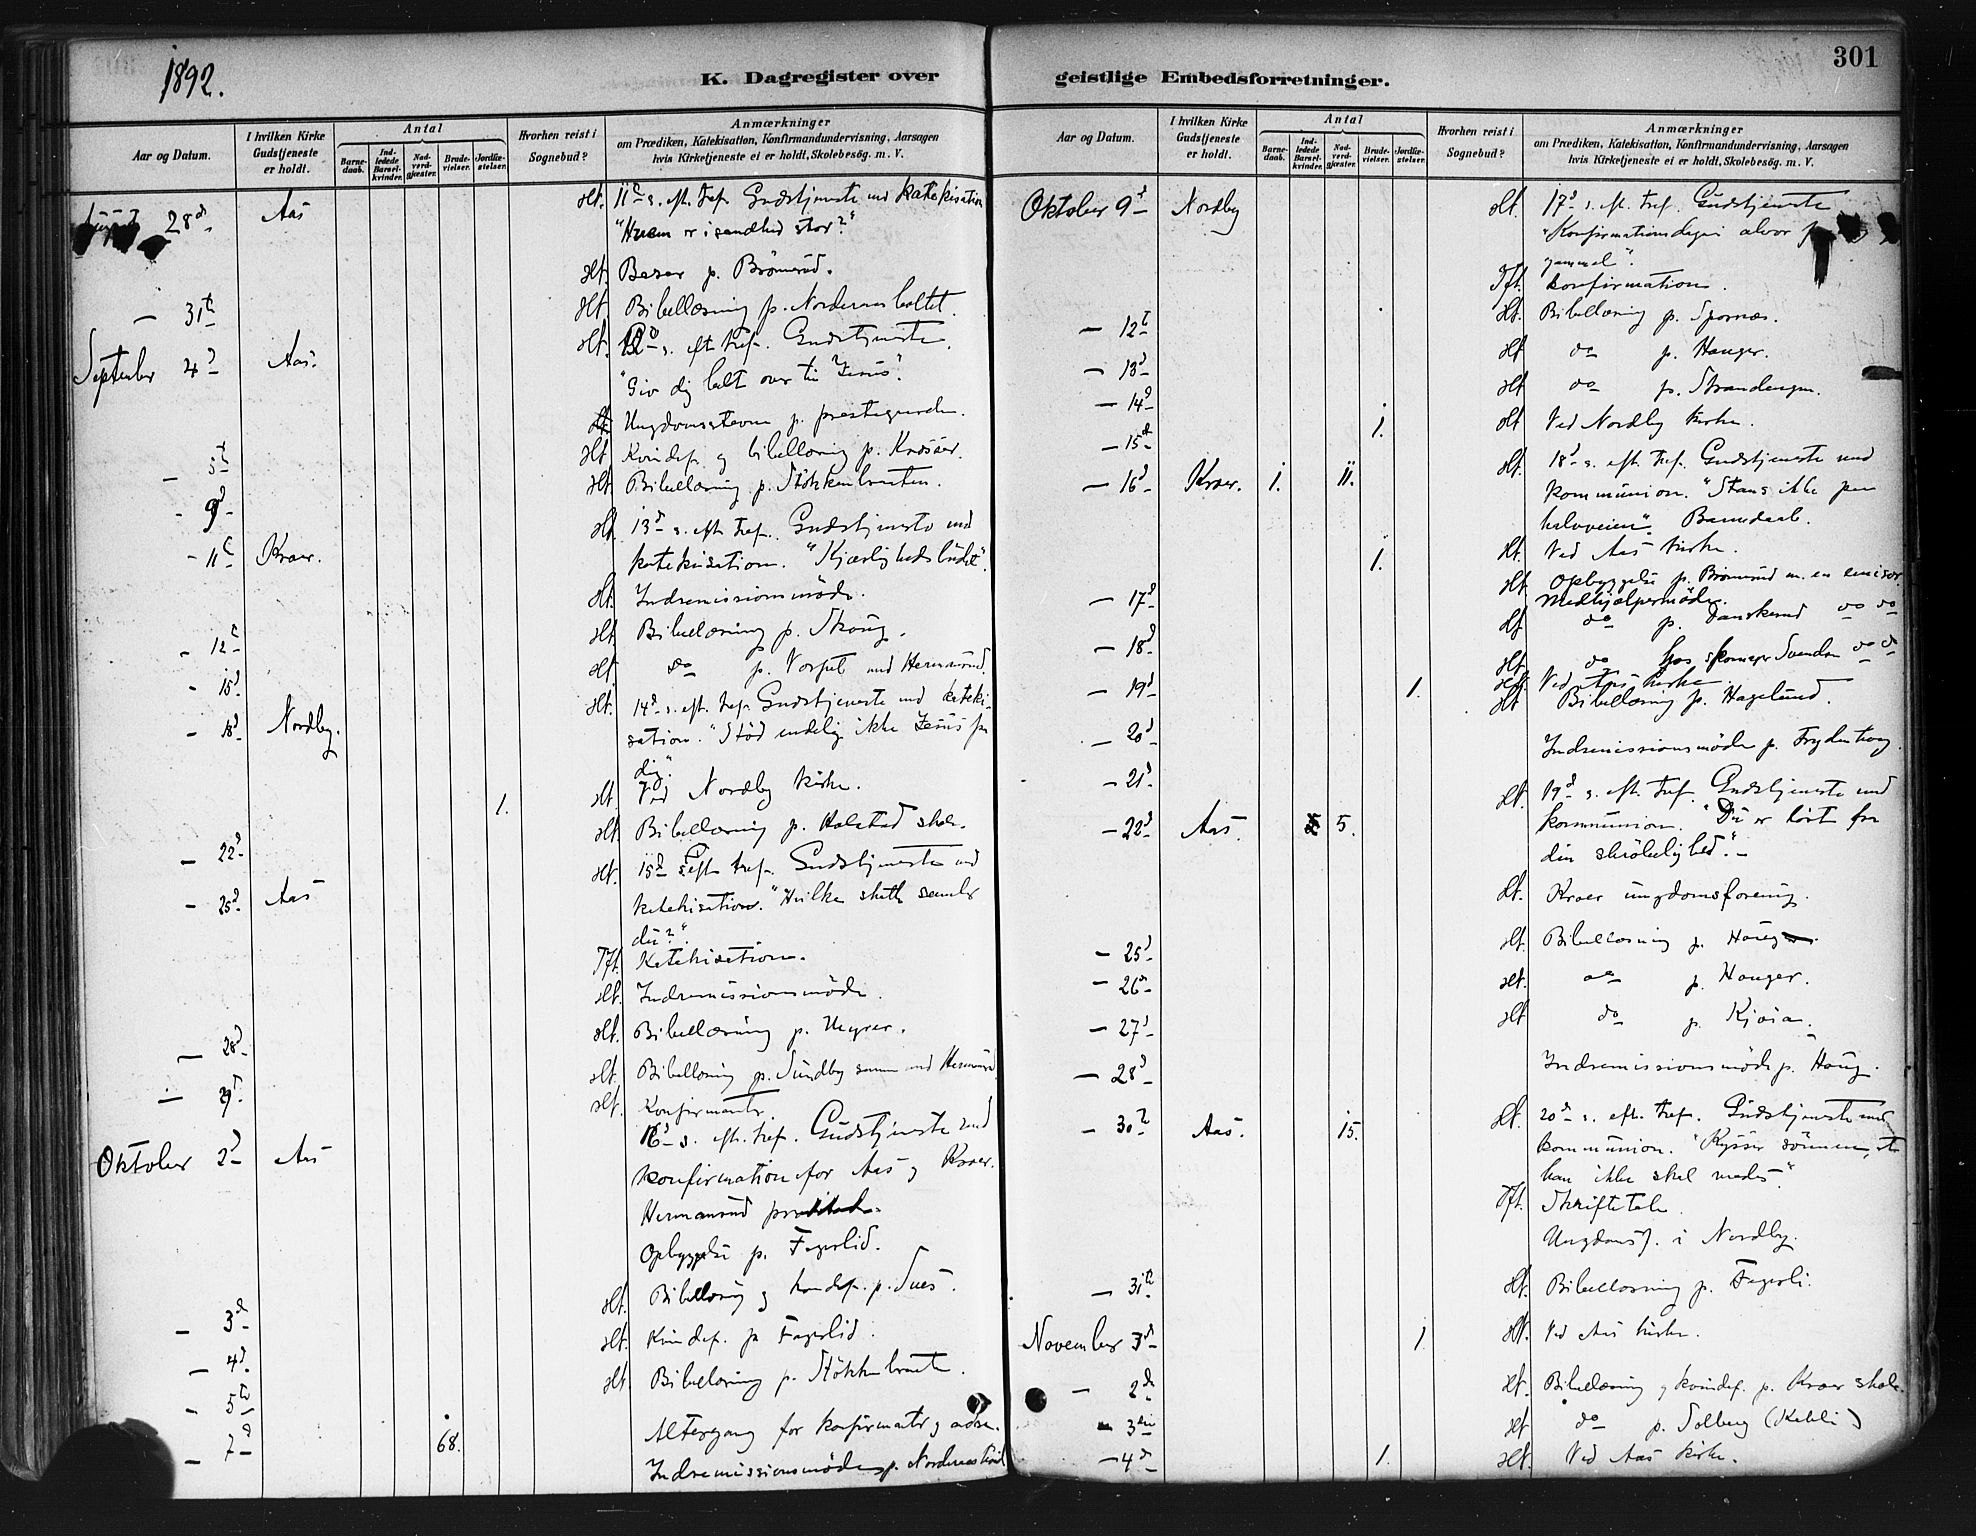 1892.
K. Dagregister over
Aar og Datum.
I hvilken Kirke Gudstjeneste er holdt.
Antal
Barne-daab.
Ind-ledede Barsel-kvinder.
Nad-verd-gjæster.
Brude-vielser.
Jordfæ-stelser.
Hvorhen reist i Sognebud?
Anmærkninger
om Prædiken, Katekisation, Konfirmandundervisning, Aarsagen
hvis Kirketjeneste ei er holdt, Skolebesøg. m. V.
28d Aas Hf. 11te s. eft. tref. Gudstjeneste med katekisation
"Hvem er i sandhed stor?"
Hf. Basar p. Brömsrud.
— 31te Hf. Bibellæsning p.
September 4d Aas. Hf. 12d s. eft tref. Gudstjeneste.
"Giv dig helt over til Jesus".
Hf. Ungdomsstevne p. prestegaarden.
— 5t Hf. Kvindef. g bibellæsning p.
- 9d Hf. Bibellæsning p. Stökkenbraaten.
- 11t Kroer. Hf. 13d s. eft. tref. Gudstjeneste med
katekisation. "Kjærlighedsbudet".
Hf. Indremissionsmöde.
- 12t Hf. Bibellæsning p. Skoug.
- 15d Hf. do p. med Hermansrud.
- 18d Nordby. Hf. 14d s. eft. tref. Gudstjeneste med kateki-
sation. "Stöd endelig ikke Jesus fra
dig."
1. Hf. Ved Nordby kirke.
- 22d Hf. Bibellæsning p. Halstad skole.
- 25d Aas Hf. 15d s. eft. tref. Gudstjeneste med
katekisation. "Hvilke skatte samler
du?".
Tft. Katekisation.
Hf. Indremissionsmöde.
— 28d Hf. Bibellæsning p.
— 29d Hf. Bibellæsning p. Sundby sammen med Hermansrud
Hf. Konfirmanter.
Oktober 2d Aas 16d s. eft. tref. Gudstjeneste med
konfirmation for Aas g Kroer.
Hermansrud
Opbyggelse p. Fagerlid.
- 3d Hf. Bibellæsning g kvindef. p.
- 4d Hf. Kvindef. p Fagerlid.
- 5te Hf. Bibellæsning p. Stökkenbraaten.
- 7d 68. Altergang for konfirmanter g andre.
Indremissionsmöde p.
geistlige Embedsforretninger.
301
Aar og Datum.
I hvilken Kirke Gudstjeneste er holdt.
Antal
Barne-daab.
Ind-ledede Barsel-kvinder.
Nad-verd-gjæster.
Brude-vielser.
Jordfæ-stelser.
Hvorhen reist i Sognebud?
Anmærkninger
om Prædiken, Katekisation, Konfirmandundervisning, Aarsagen
hvis Kirketjeneste ei er holdt, Skolebesøg. m. V.
Oktober 9d Nordby Hf. 17d s. eft. tref. Gudstjeneste
"Konfirmationsdagens alvor
gammel".
Tft. konfirmation.
— 12t Hf. Bibellæsning p. Spornæs.
— 13d Hf do p. Hauger.
— 14d Hf do p. Strandengen.
— 15d 1. Hf Ved Nordby kirke.
— 16d Kroer. 1. 11. Hf. 18d s. eft. tref. Gudstjeneste med
kommunion. "Stans ikke paa
halvveien". Barnedaab.
1. Hf. Ved Aas kirke.
— 17d Hf. Opbyggelse p. Brömsrud m. en emissær
Medhjælpermöde.
— 18d Hf do p. Danskerud do do
— 19d Hf do hos skomager Svendsen do do
1. Hf. Ved Aas kirke
— 20d Hf Bibellæsning p. Hagelund.
— 21d Indremissionsmöde p. Frydenhaug.
— 22d Aas. 5. Hf. 19d s. eft. tref. Gudstjeneste med
kommunion. "Du er löst fra
din skröbelighed."
Hf. Kroer ungdomsforening.
— 25d Hf. Bibellæsning p. Haug.
— 26d Hf. do p. Hauger.
— 27d Hf do p. Kjæia.
— 28d Indremissionsmöde p. Haug.
— 30te Aas. 15. Hf. 20d s. eft. tref. Gudstjeneste med
kommunion. "Kysser sönnen, at
han ikke skal vredes".
Tft. Skriftetale.
Ungdomsf. i Nordby.
— 31te Hf. Bibellæsning p. Fagerli.
November 3d 1 Hf. Ved Aas kirke.
— 2d Hf. Bibellæsning g kvindef. p. Kroer skole.
- 3die Hf do p. Solberg
— 4d 1. Hf. Ved Aas kirke.